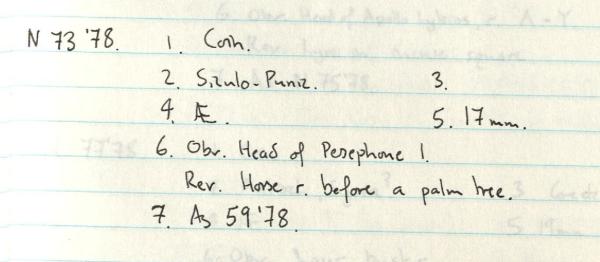 N 73 '78. 1. Coin.
2. Siculo-Punic. 3.
4. Æ. 5. 17 mm.
6. Obv. Head of Pesephone l.
Rev. Horse r. before a palm tree.
7. As 59 '78.